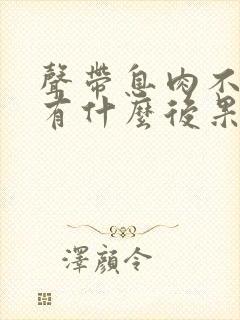 聲帶息肉不
有什麼後果
澤顏令